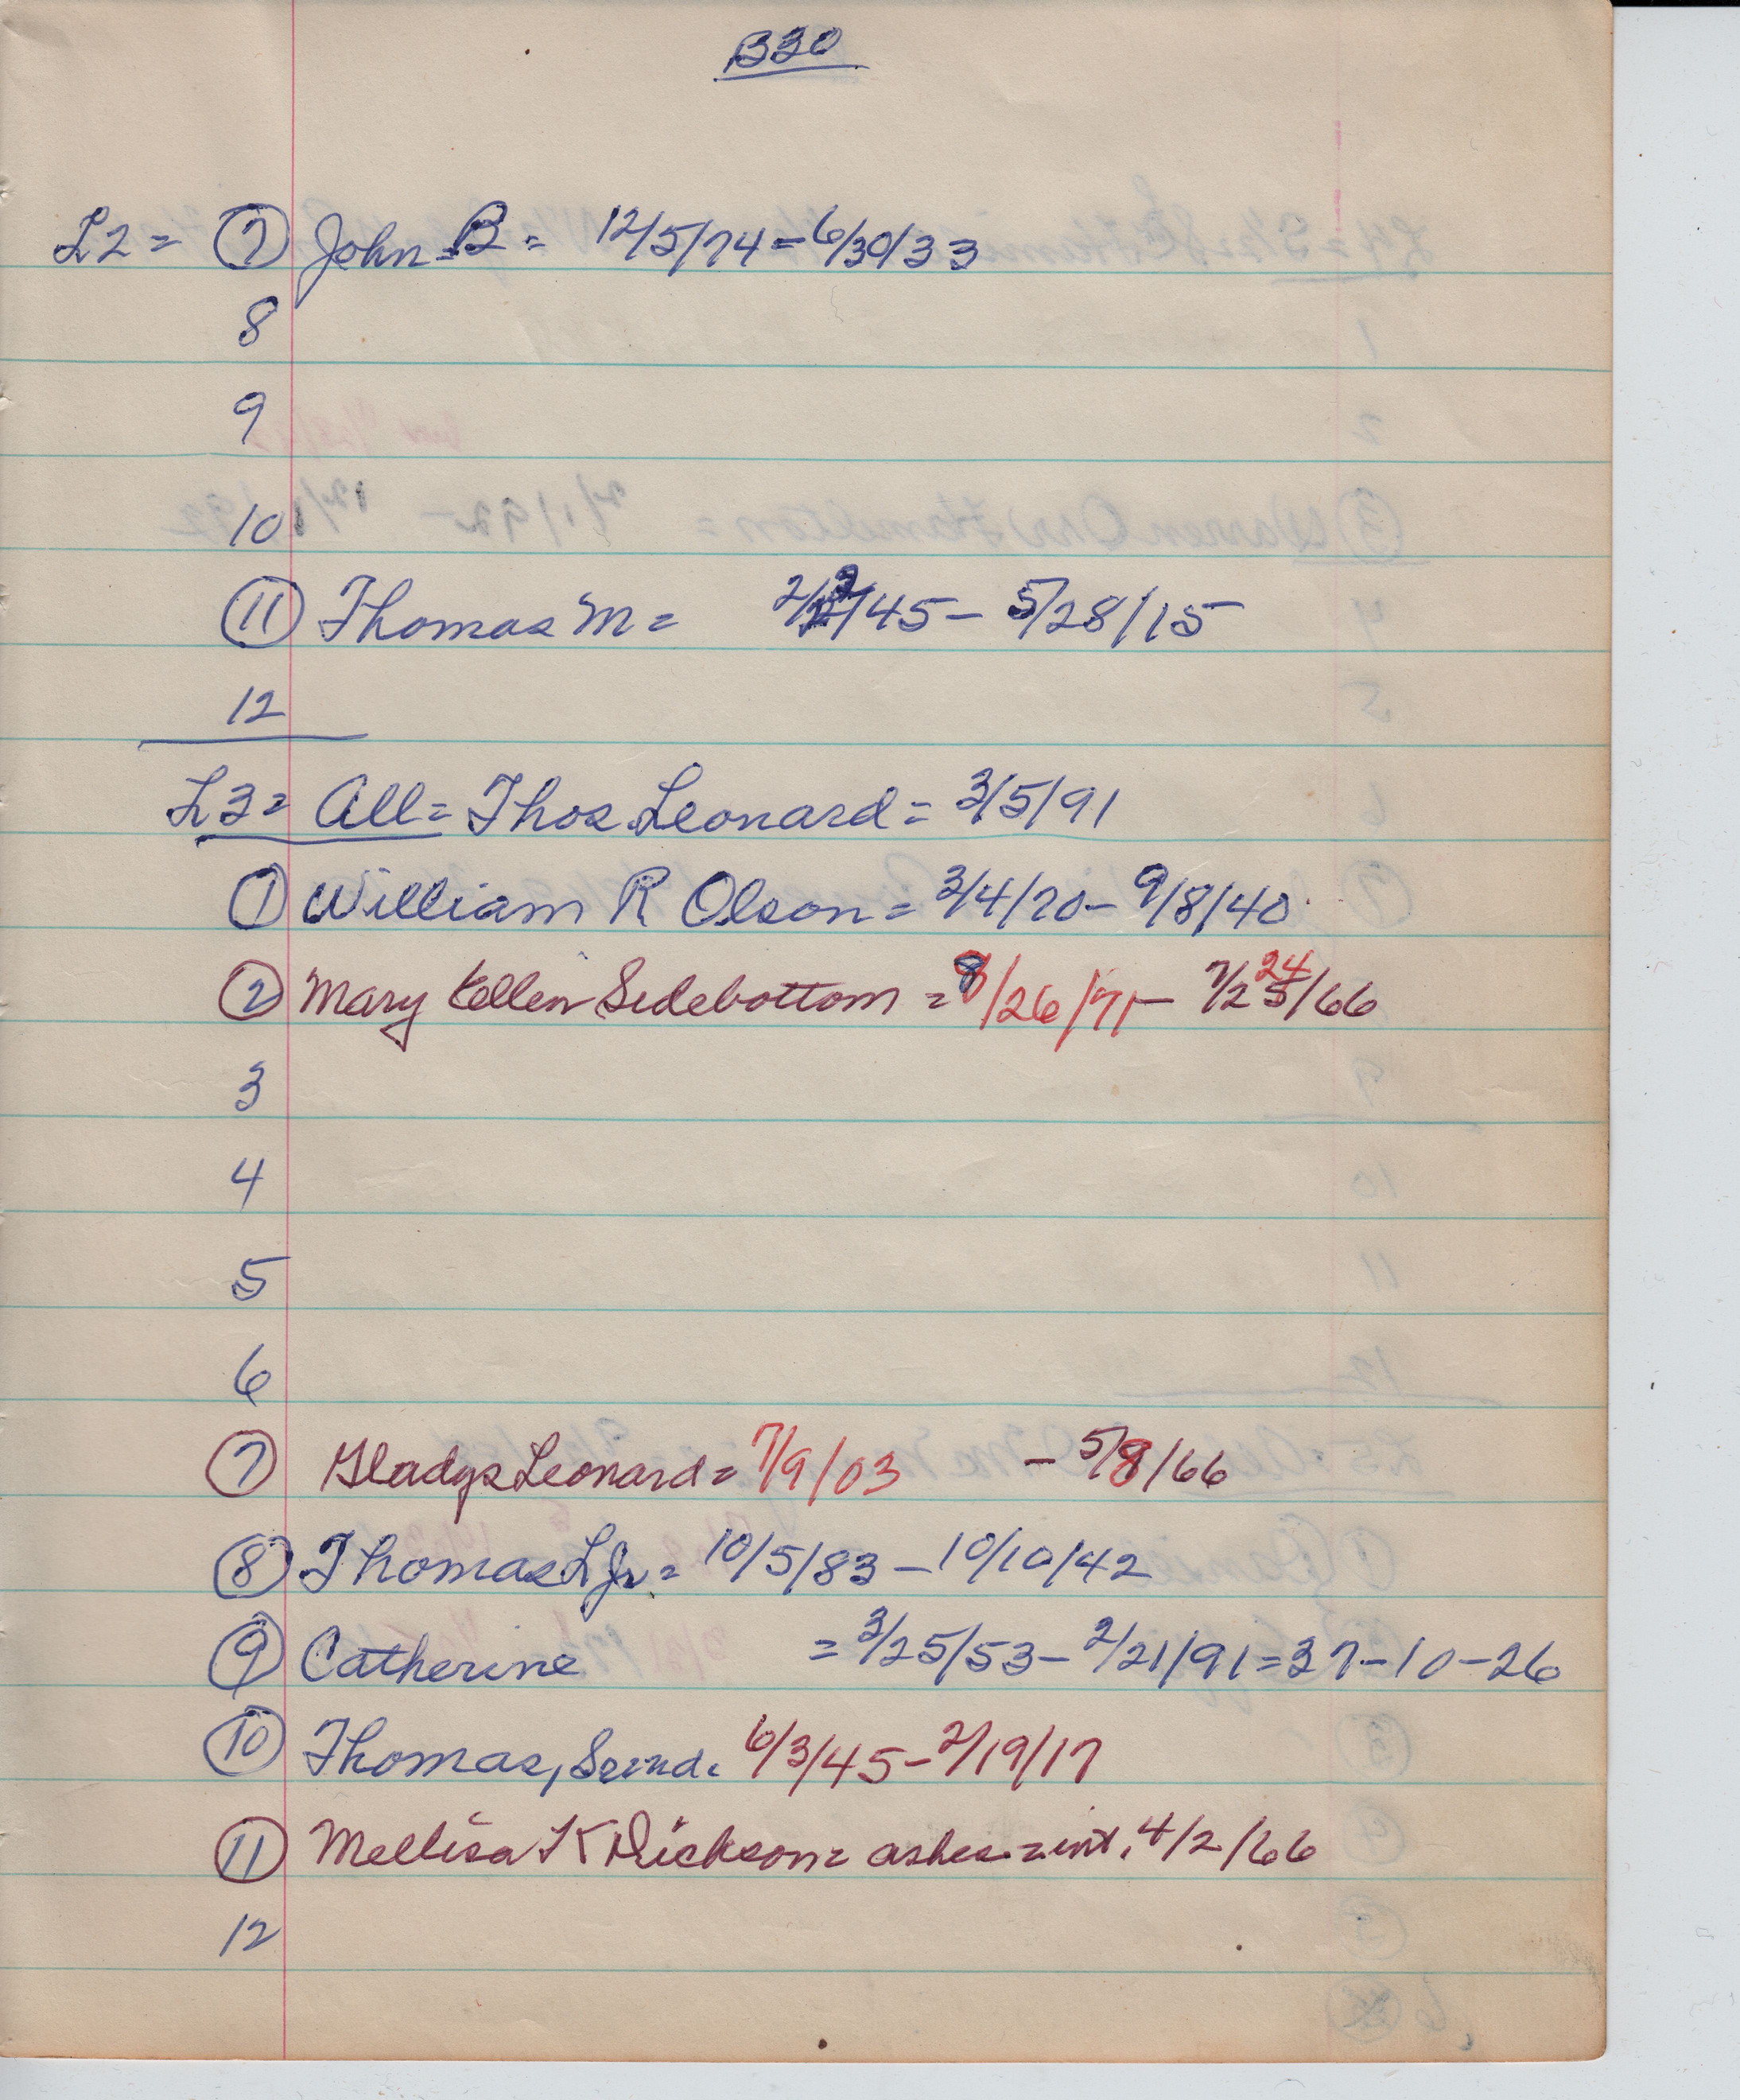 B30
L2 = 7 John B = 12/5/74 - 6/30/33
8
9
10
11 Thomas M = 2/ /45 - 5/28/15
12
L3 = All = Thos Leonard = 3/5/91
1 William R Olson = 3/4/70 - 9/8/40
2 Mary Sidebottom = 8/26/71 - 7/ /66
3
4
5
6
7 Gladys Leonard = 7/9/03 - 5/8/66
8 Thomas L Jr. = 10/5/83 - 10/10/42
9 Catherine = 3/25/53 - 2/21/91 = 37-10-26
10 Thomas, 6/3/45 - 2/19/17
11 Mellisa K Dickson = ashes = int. 4/2/66
12